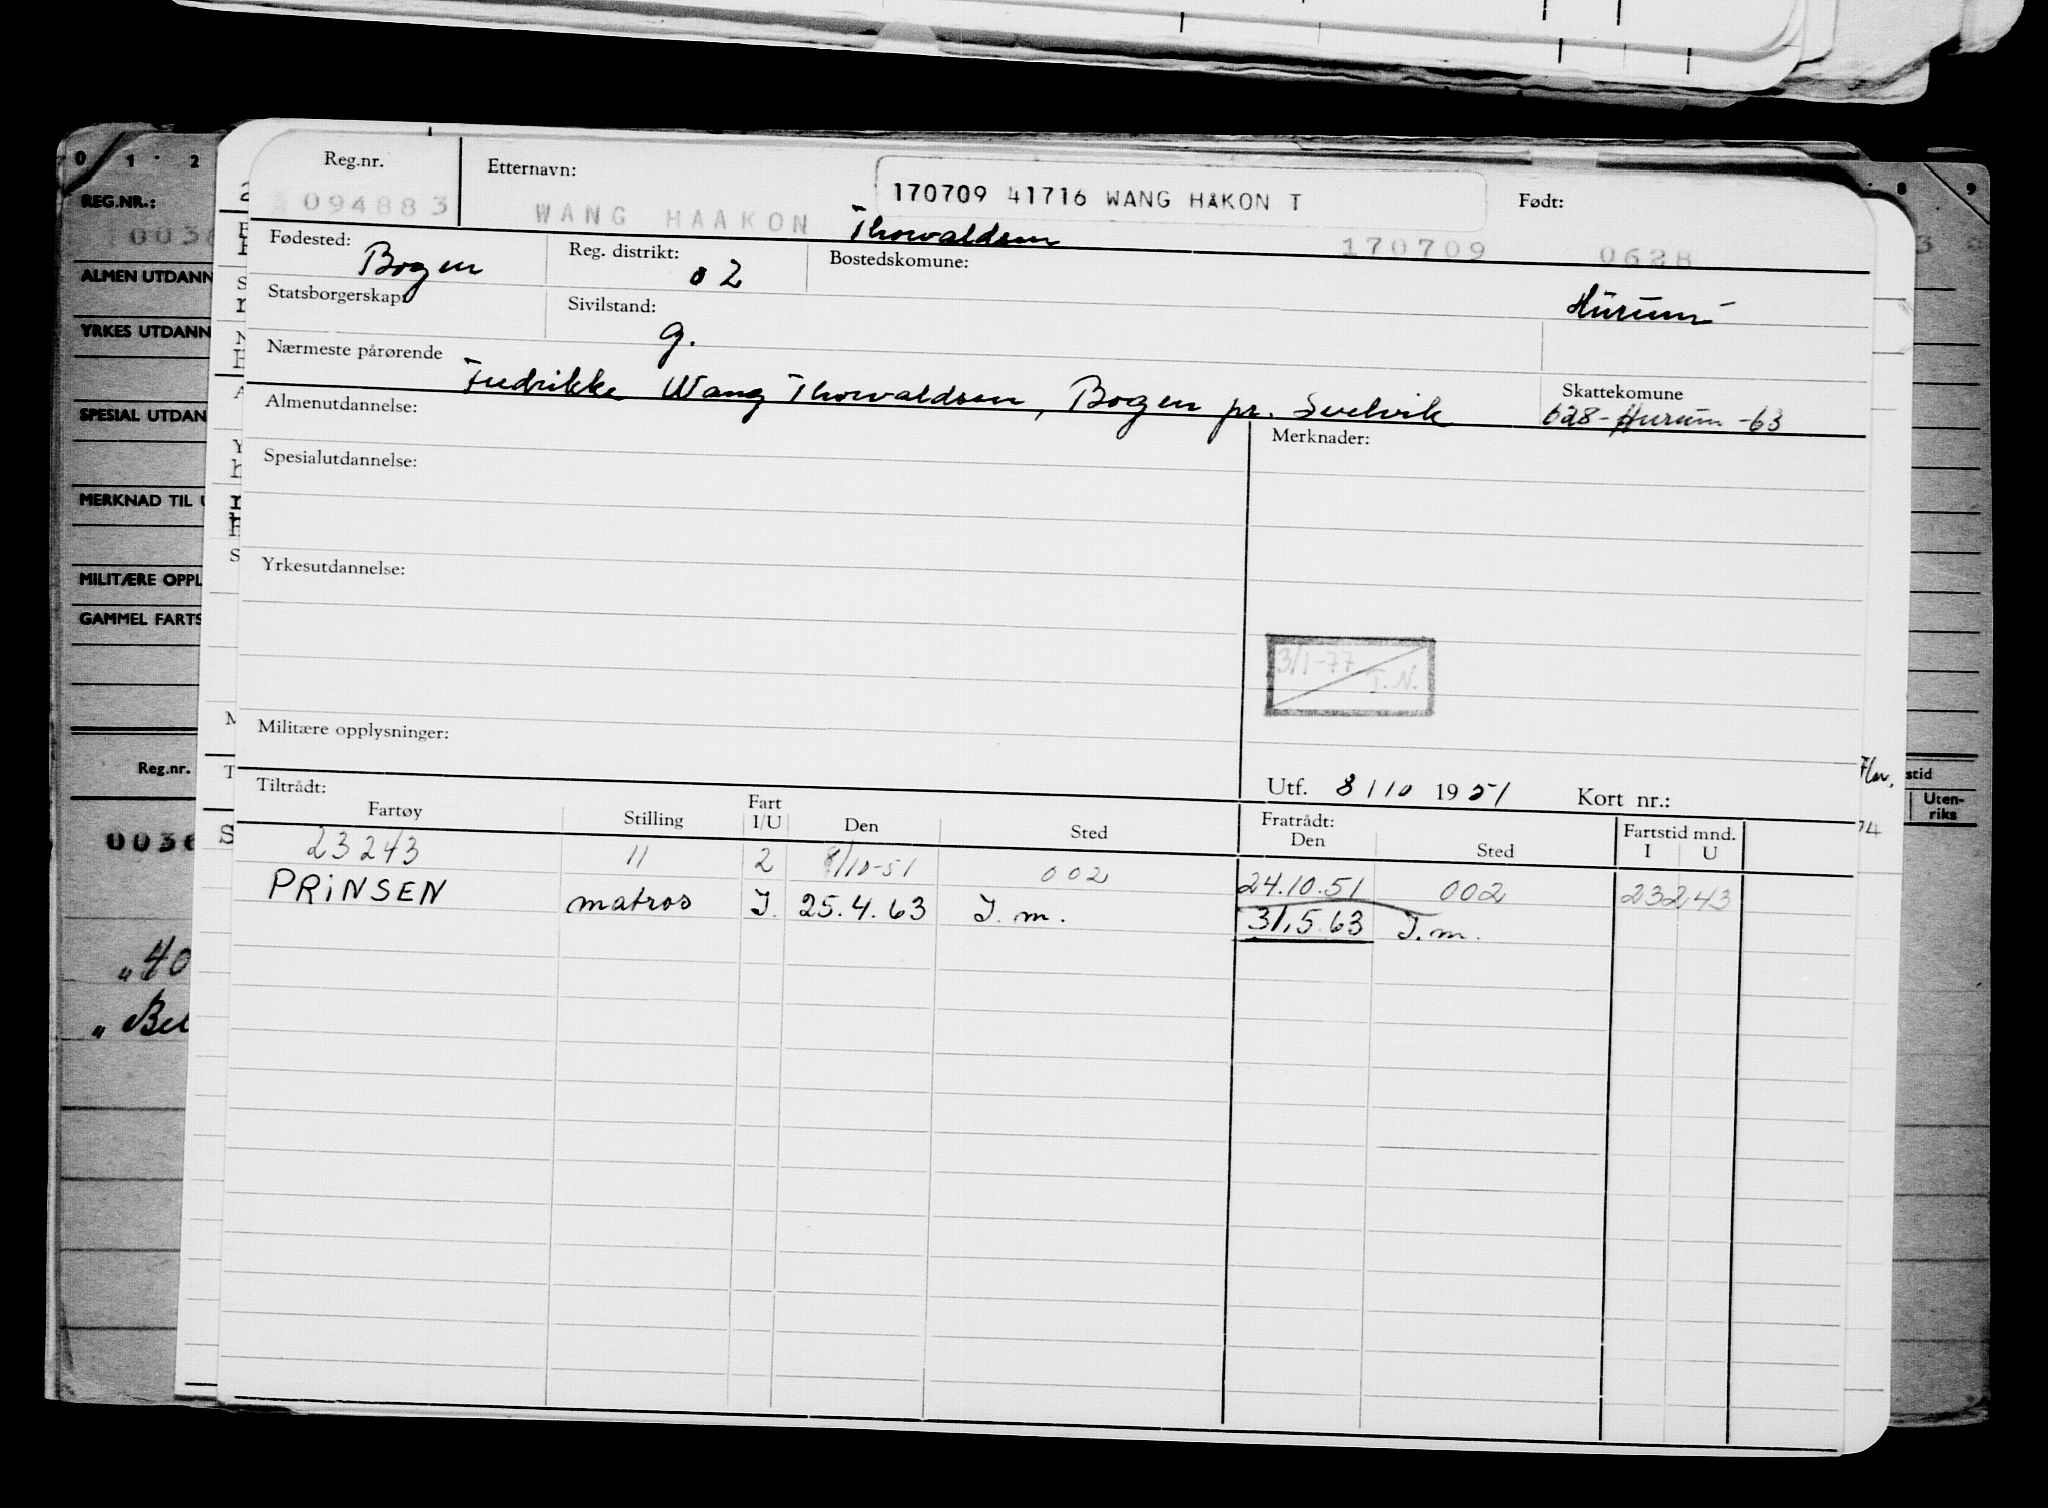 0 1 2
8 9
REG.NR.:
ALMEN UTDANN
YRKES UTDANN
SPESIAL UTDAN
MERKNAD TIL U
MILITÆRE OPPL
GAMMEL FARTS
Reg.nr.
„40
„Bel
stid
Uten-
riks
Reg.nr. Etternavn: 170709 41716 WANG HÅKON T Født:
094883 WANG HAAKON Thorvaldsen 170709 0628
Fødested: Bogen Reg. distrikt: 02 Bostedskomune: Hurum
Statsborgerskap: Sivilstand: g.
Nærmeste pårørende Fredrikke Wang Thorvaldsen, Bogen pr. Svelvik Skattekomune
628-Hurum-63
Almenutdannelse: Merknader:
Spesialutdannelse:
Yrkesutdannelse:
3/1-77 T.N.
Militære opplysninger:
Utf. 8/10 1951 Kort nr.:
Tiltrådt: Fratrådt: Fartstid mnd.
Fartøy Stilling Fart I/U Den Sted Den Sted I U
23243 11 2 8/10-51 002 24.10.51 002 23243
PRINSEN matros I. 25.4.63 I.m. 31.5.63 I.m.